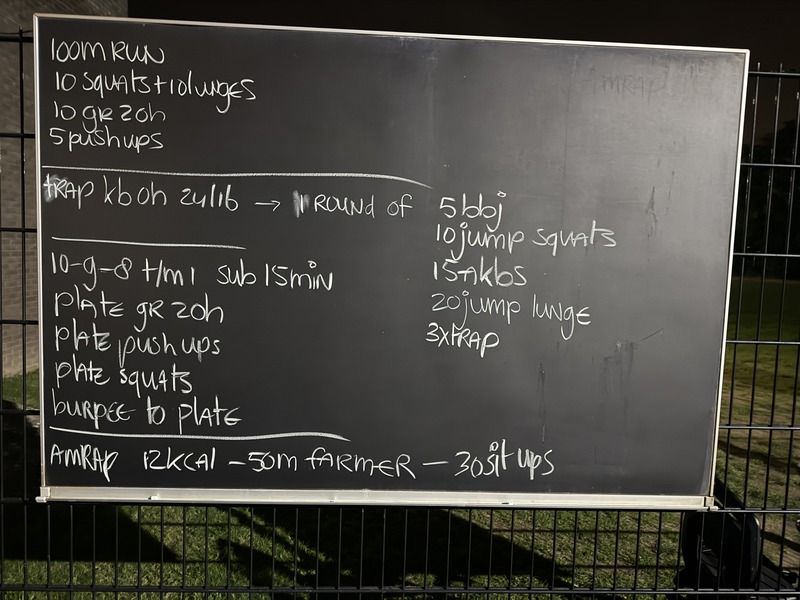 100m RUN
10 squats+10lunges
10 gr 2oh
5 pushups
tRAP kb oh 24/16 → 1 ROUND of
5 bbj
10 jump squats
15 Akbs
20 jump lunge
3xtRAP
10-9-8 t/m 1 sub 15 min
plate gr 2oh
plate push ups
plate squats
burpee to plate
AMRAP 12kcal - 50m farmer - 30 sit ups